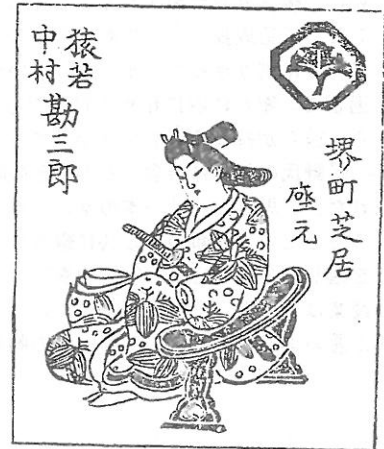 堺町芝居
座元
猿若
中村
勘三郎